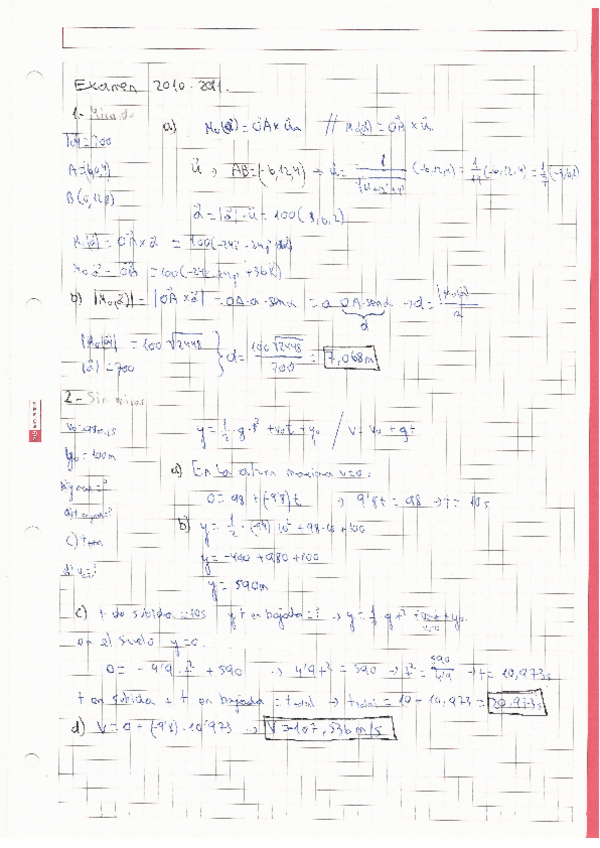 Examen 2010-2011.
1-
a) M₀(a) = OA × u // M₀(a) = OA × u
= 700
A = (6,0,4)
B (0,12,8)
u → AB = (-6,12,4) → u =
a = |a| · u = 100(
= OA × a = 100(-24i - 24j
= 100(-24i - 24j + 36k)
b) |M₀(a)| = |OA × a| = OA · a · senα = a OA · senα → d = |M₀(a)| / a
d
= 100√2448
|a| = 700
} d = 100√2448 / 700 = 7,068m
2-
v₀ = 98m/s
y₀ = 100m
y = 1/2 · g · t² + v₀t + y₀ / v = v₀ + gt
a) En la altura maxima v=0.
0 = 98 + (-9'8)t → 9'8t = 98 → t = 10s
b) y = 1/2 · (-9'8) 10² + 98·10 + 100
y = -490 + 980 + 100
y = 590m
c) t de subida = 10s y t en bajada = ? → y = 1/2 gt² + y₀.
en el suelo y=0.
0 = -4'9 · t² + 590 → 4'9t² = 590 → t² = 590/4'9 → t = 10,973s
t en subida + t en bajada = t total → t total = 10 + 10,973 = 20,973s
d) V = 0 + (-9'8) · 10'973 → V = -107,536 m/s